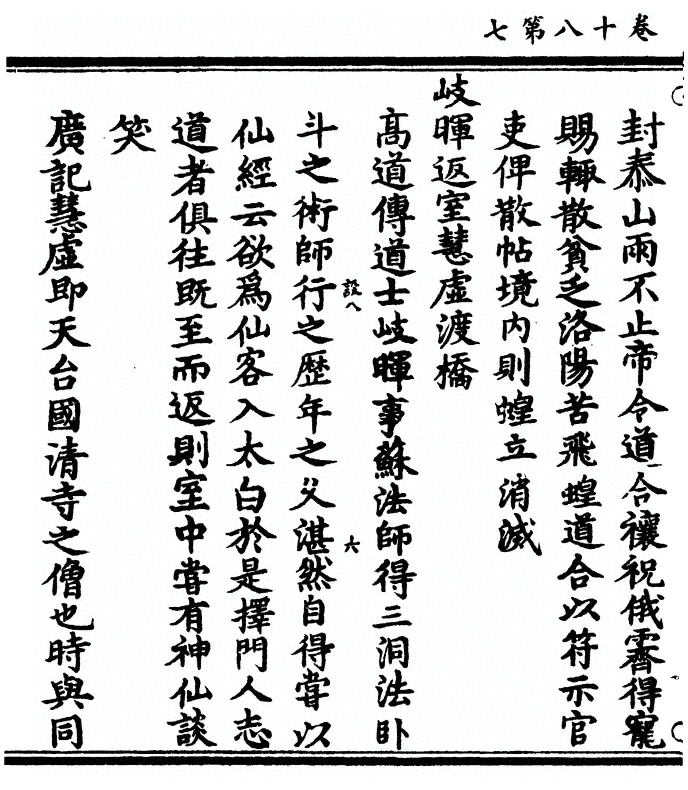 卷十八第七
封泰山雨不止帝令道合禳祝俄霽得寵
賜輙散貧乏洛陽苦飛蝗道合以符示官
吏俾散帖境内則蝗立消滅
岐暉返室慧虛渡橋
髙道傳道士岐暉事蘇法師得三洞法卧
斗之術師行之歷年之久湛然自得嘗以
設八
六
仙經云欲爲仙客入太白於是擇門人志
道者俱往既至而返則室中嘗有神仙談
笑
廣記慧虛即天台國清寺之僧也時與同